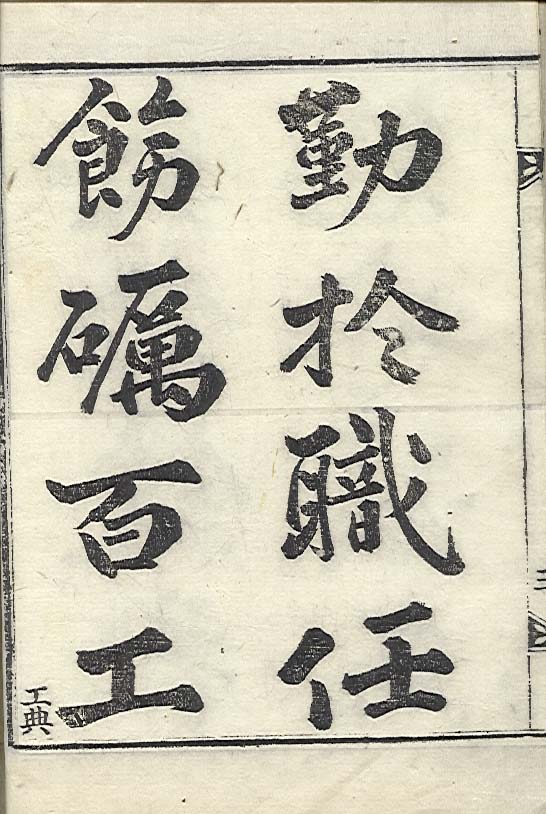 勤扵職任
飭礪百工
工典